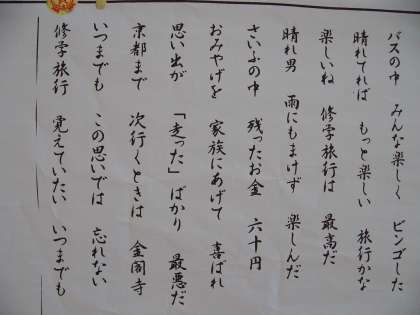 バスの中 みんな楽しく ビンゴした
晴れてれば もっと楽しい 旅行かな
楽しいね 修学旅行は 最高だ
晴れ男 雨にもまけず 楽しんだ
さいふの中 残ったお金 六十円
おみやげを 家族にあげて 喜ばれ
思い出が 「走った」ばかり 最悪だ
京都まで 次行くときは 金閣寺
いつまでも この思いでは 忘れない
修学旅行 覚えていたい いつまでも